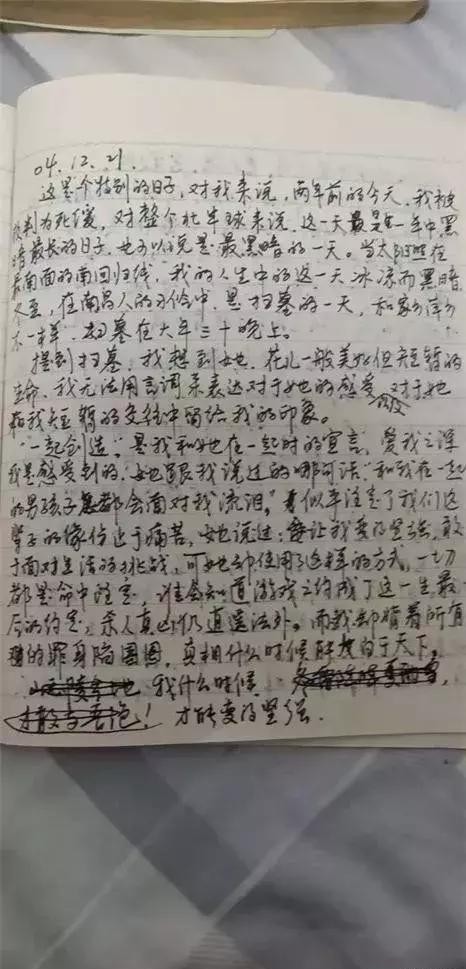 04.12.21.
这是个特别的日子，对我来说，两年前的今天，我被
判为死缓，对整个北半球来说，这一天是一年中黑
暗最长的日子，也可以说是最黑暗的一天。当太阳在
最南面的南回归线，我的人生中的这一天冰凉而黑暗
冬至，在南昌人的习俗中，是扫墓的一天，和家乡萍乡
不一样，扫墓在大年三十晚上。
提到扫墓，我想到她，花儿一般美好但短暂的
生命，我无法用言词来表达对于她的感受，对于她
和我短暂的交往中留给我的印象。
"一起创造"，是我和她在一起时的宣言，爱我之深
我是感受到的，她跟我说过的哪句话"和我在一起
的男孩子都会面对我流泪，"似乎注定了我们这
辈子的缘份止于痛苦，她说过：要让我变的坚强，敢
于面对生活的挑战，可她却使用了这样的方式，一切
都是命中注定，谁会知道游戏之约成了这一生最
后的约定，杀人真凶仍逍遥法外。而我却背着所有
的罪身陷囹圄，真相什么时候能大白于天下。
我什么时候
才能变的坚强.